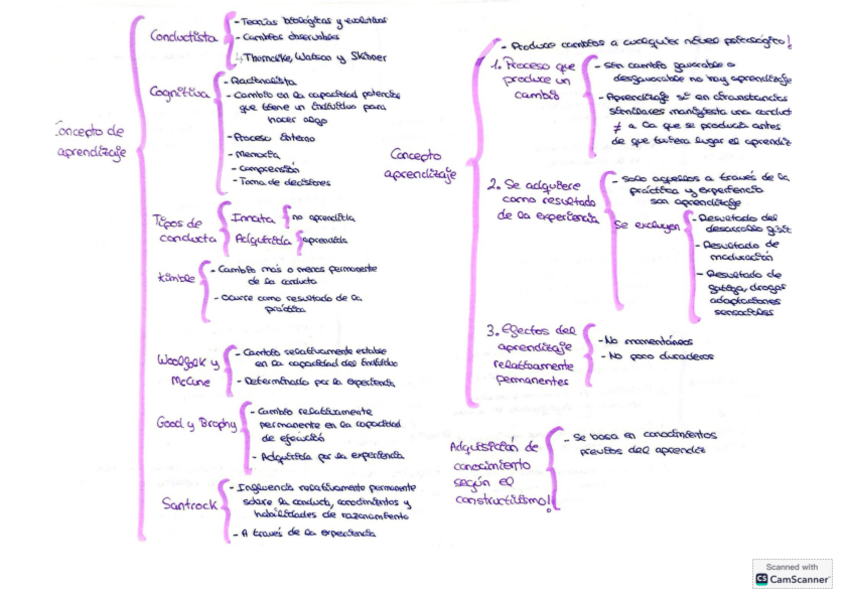 Concepto de
aprendizaje
Conductista
- Teorías biológicas y evolutivas
- Cambios observables
↳ Thorndike, Watson y Skinner
Cognitiva
- Racionalista
- Cambio en la capacidad potencial
que tiene un individuo para
hacer algo
- Proceso interno
- Memoria
- Comprensión
- Toma de decisiones
Tipos de
conducta
Innata
no aprendida
Adquirida
aprendida
Kimble
- Cambio mas o menos permanente
de la conducta
- Ocurre como resultado de la
práctica
Woolfolk y
McCune
- Cambio relativamente estable
en la capacidad del individuo
- Determinado por la experiencia
Good y Brophy
- Cambio relativamente
permanente en la capacidad
de ejecució
- Adquirida por la experiencia
Santrock
- Influencia relativamente permanente
sobre la conducta, conocimientos y
habilidades de razonamiento
- A través de la experiencia
Concepto
aprendizaje
- Produce cambios a cualquier nivel psicológico!
1. Proceso que
produce un
cambio
- Sin cambio favorable o
desfavorable no hay aprendizaje
- Aprendizaje si en circunstancias
similares manifiesta una conduct
≠ a la que se producía antes
de que tuviera lugar el aprendiz
2. Se adquiere
como resultado
de la experiencia
- Solo aquellos a través de la
práctica y experiencia
son aprendizaje
Se excluyen
- Resultado del
desarrollo físic
- Resultado de
maduración
- Resultado de
fatiga, drogas
adaptaciones
sensoriales
3. Efectos del
aprendizaje
relativamente
permanentes
- No momentáneos
- No poco duraderos
Adquisición de
conocimiento
según el
constructivismo!
- Se basa en conocimientos
previos del aprendiz
Scanned with
CS CamScanner